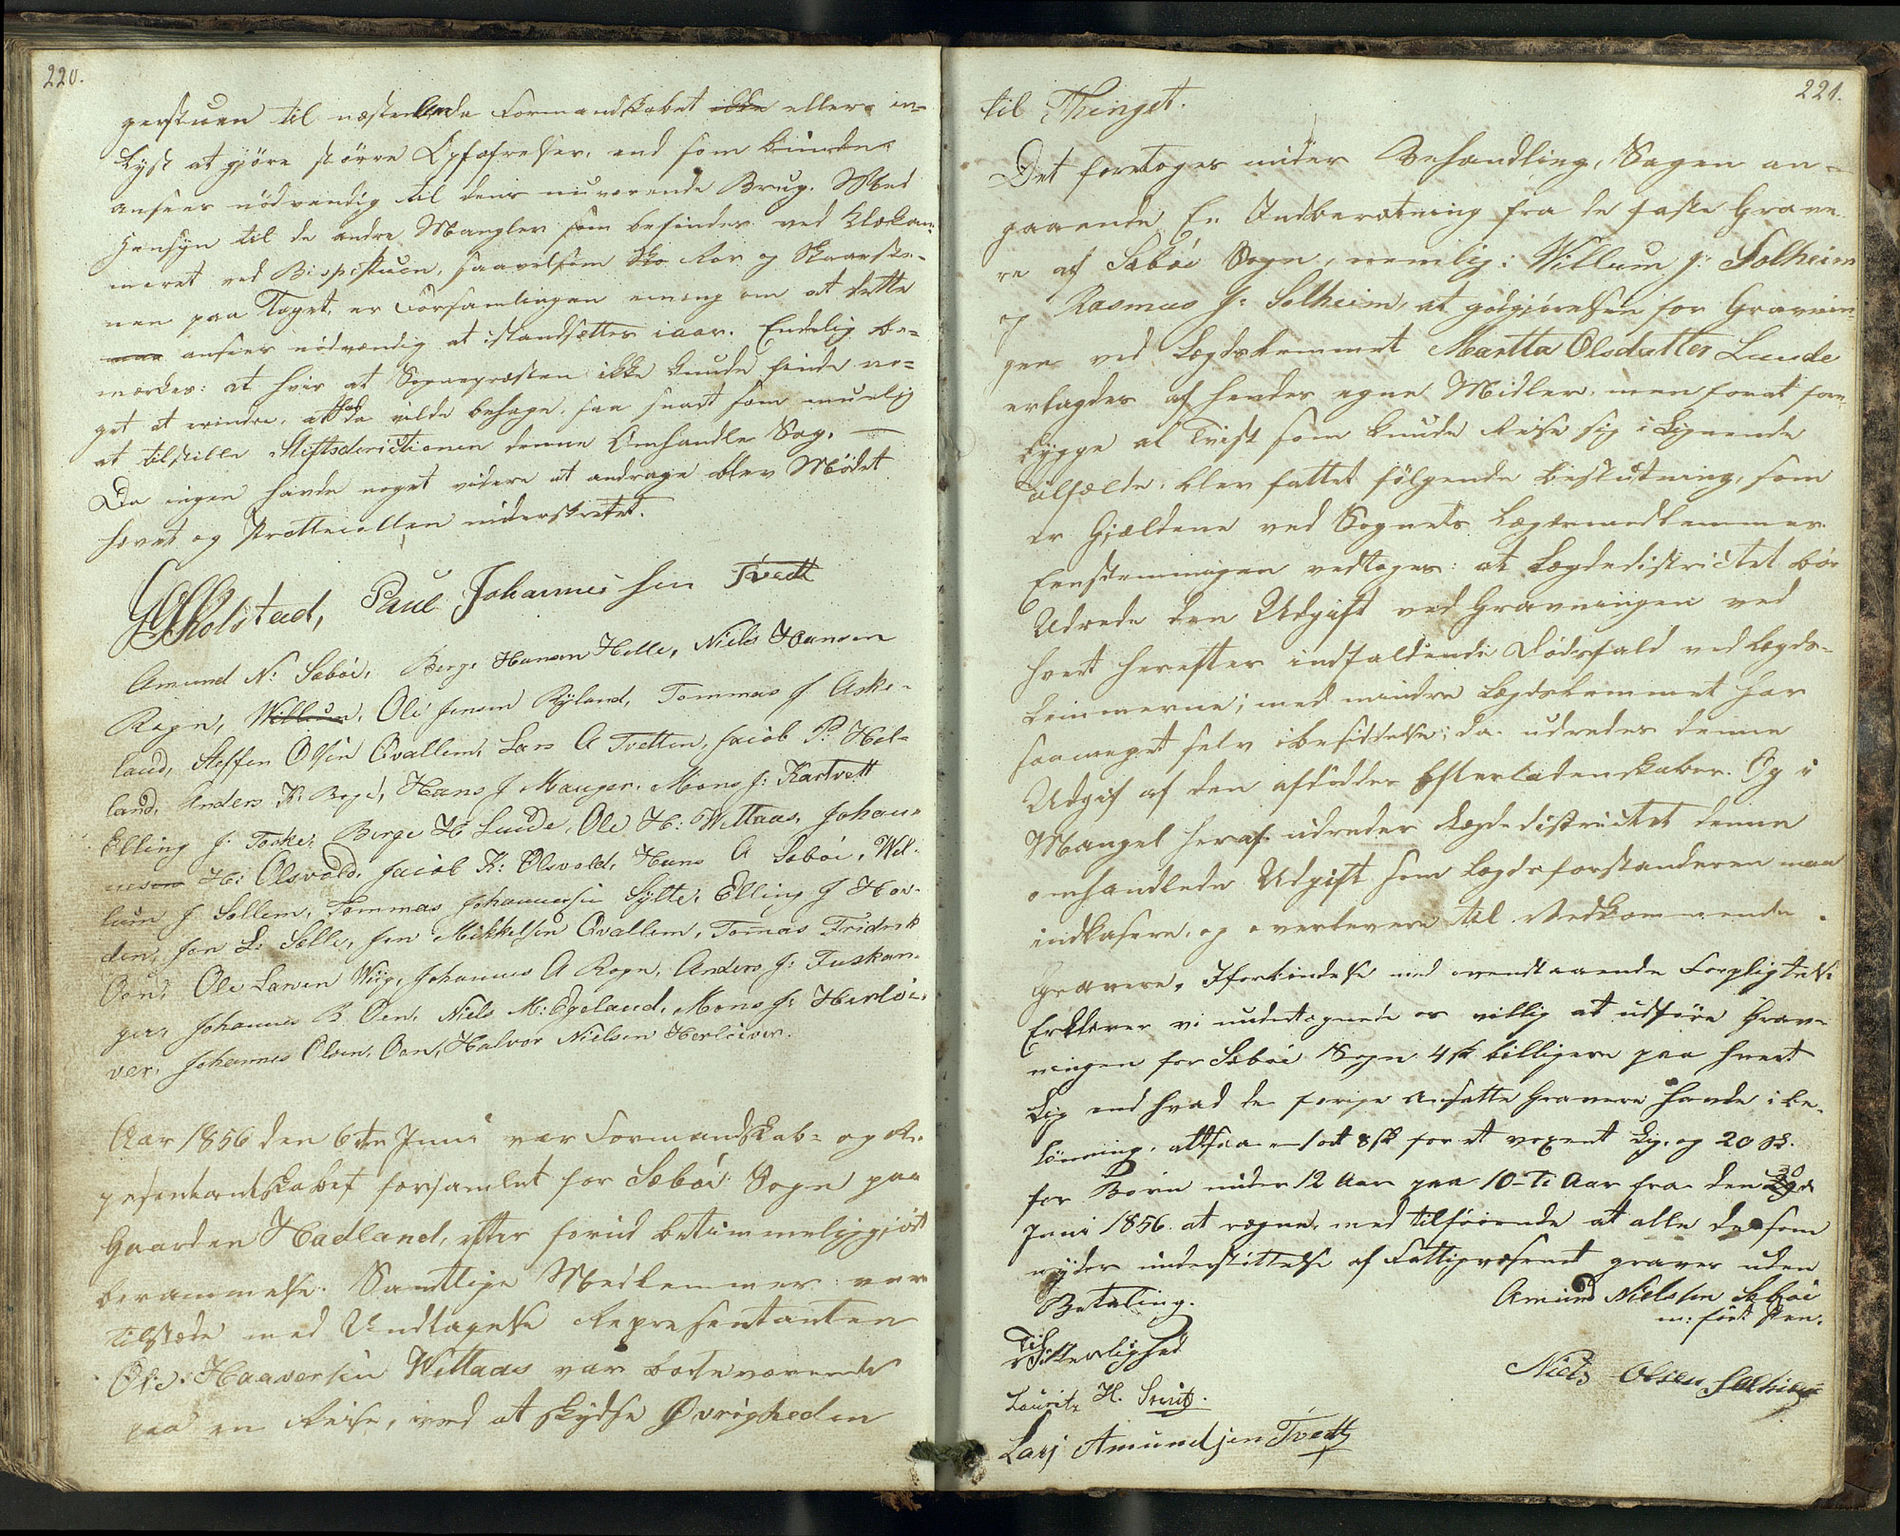 220.
gerstuen til næstenlende Formandskabet ikke eller in-
Lyst at gjöre större Opofrelser, end som kunde
ansees nödvendig til dens nuværende Brug. Med
Hensyn til de andre Mangler som befindes ved Klokam-
meret ved Bispstuen, saavelsom Sko Rör og Skaarste-
nen paa Taget, er Forsamlingen eening om at dette
maa ansees nödvendig at istandsættes iaar. Endelig be-
mærkes: at hvis at Sognepræsten ikke kunde finde no-
get at erindre, at han da vilde behage, saa snart som muelig
at tilstille Stiftsderictionen denne Omhandle Sag. —
Da ingen havde noget videre at andrage blev Mödet
hævet og Prottecollen underskrevet.
Kolstad, Paul Johannessen Tvedt
Amund N: Sæböe, Berge Hansen Helle, Niels Hansen
Rogn, Willum, Ole Jensen Ryland, Tommas J Aske-
land, Steffen Olsen Qvallem, Lars A Tvetten, Jacob P: Hel-
land, Anders K: Böge, Hans J Manger, Mons J: Kartvett
Elling J: Toske, Berge H Lunde, Ole H: Wettaas, Johan-
nesen H: Olsvold, Jacob K: Olsvold, Hans A Sæböe, Wil-
lum J Sollem, Tommas Johannessen Sylte, Elling J Hor-
den, Jon L: Sælle, Jon Mikkelsen Qvallem, Tomas Fridrik
Oen, Ole Larsen Wiig, Johannes A Rogn, Anders J: Fuskan-
ger, Johannes B Oen, Niels M: Egeland, Mons J: Herlöe-
ver, Johannes Olsen Oen, Halvor Nielsen Herlöever.
Aar 1856 den 6te Juni var Formandskab- og Re-
pesentantskabet forsamlet for Sæböe Sogn paa
Gaarden Hadland, efter forud betimmeliggjört
berammelse. Samtlige Medlemmer var
tilstæde med Undtagelse Repræsentanten
Ole Haaversen Wettaas var borteværende
paa en Reise, ved at skydse Övrigheden
221.
til Thinget.
Det foretoges under Behandling, Sagen an-
gaaende En Indberetning fra de faste Grave-
re af Sæböe Sogn, nemlig: Willum J: Solheim
og Rasmus J: Solheim, at godgjörelsen for Gravnin-
gen ved Lægdslemmet Martta Olsdatter Lunde
erlagdes af hendes egne Midler, men forat fore-
bygge al Tvist som kunde Reise sig i Lignende
Tilfælde, blev fattet fölgende beslutning, som
er Gjældene ved Sognets Lægdsmedlemmer.
Eenstemmigen vedtoges: at Lægdedistrictet bör
Udrede den Udgift ved Gravningen ved
hvert herefter indfaldende Dödsfald ved Lægds-
Lemmerne; med mindre Lægdslemmet har
saameget selv ibesiddelse; da udredes denne
Udgif af den afdödes Efterladenskaber. Og i
Mangel heraf udreder Lægdedistrictet denne
omhandlede Udgift som Lægdsforstanderen maa
indkasere, og overlevere til Vedkommende
Gravere. Iforbindelse med ovenstaaende Forpligtelse
Erklærer vi undertegnede os villig at udföre Grav-
ningen for Sæböe Sogn 4 sk billigere paa hvert
Lig end hvad de forige Ansatte Gravere havde i be-
lönning, altsaa 1 ort 8 sk for et voxent Lig, og 20 sk.
for Börn under 12 Aar paa 10-Ti Aar fra den
Juni 1856 at regne, med tilföiende at alle de som
nyder understöttelse af Fattigvæsenet graves uden
Betaling.
Amund Nielssen Sæböe
m: fört Pen.
Til
Vitterlighed
Niels Olsen Solheim
Lauritz H. Smit.
Lars Amundsen Tvedt